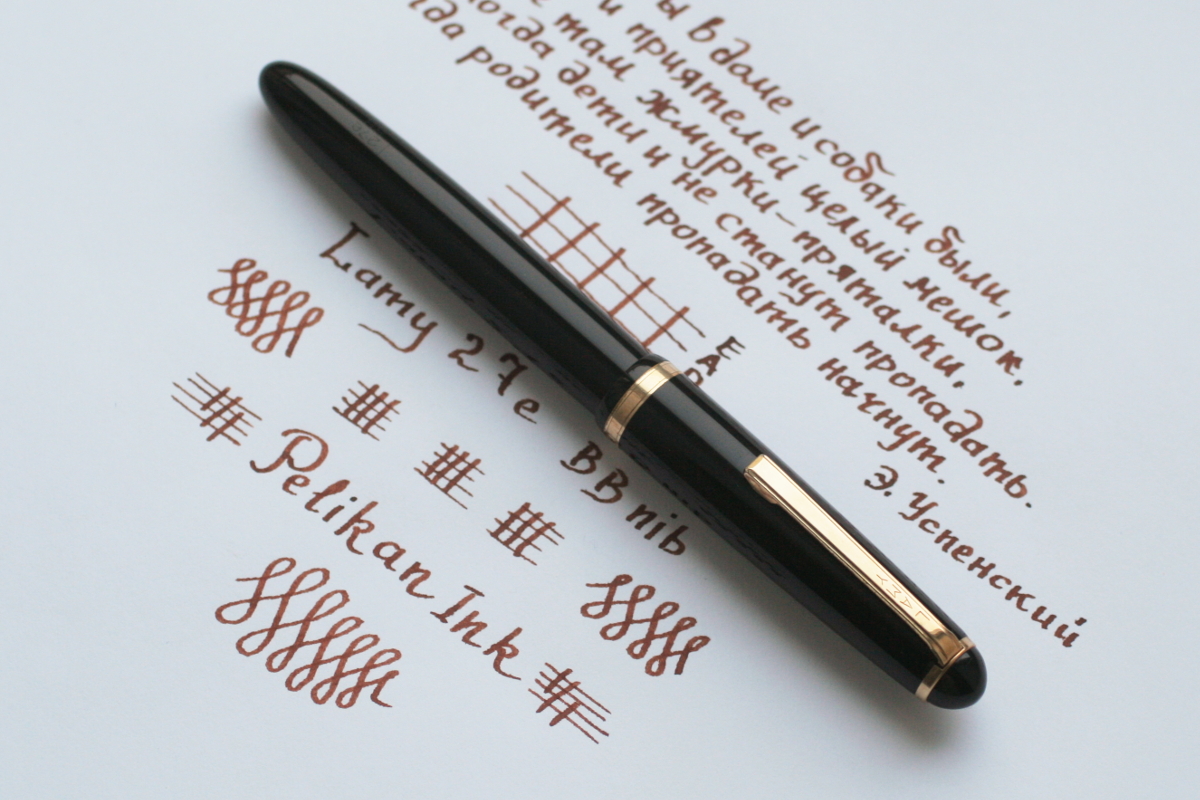 в доме и собаки были,
и приятелей целый мешок.
там жмурки-пряталки,
дети и не станут пропадать.
родители пропадать начнут.
Э. Успенский
E
A
Lamy 27e BB nib
Pelikan Ink
LAMY